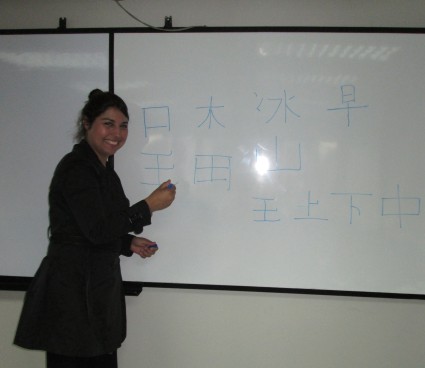 日 木 冰 早
王 田 山
王 上 下 中